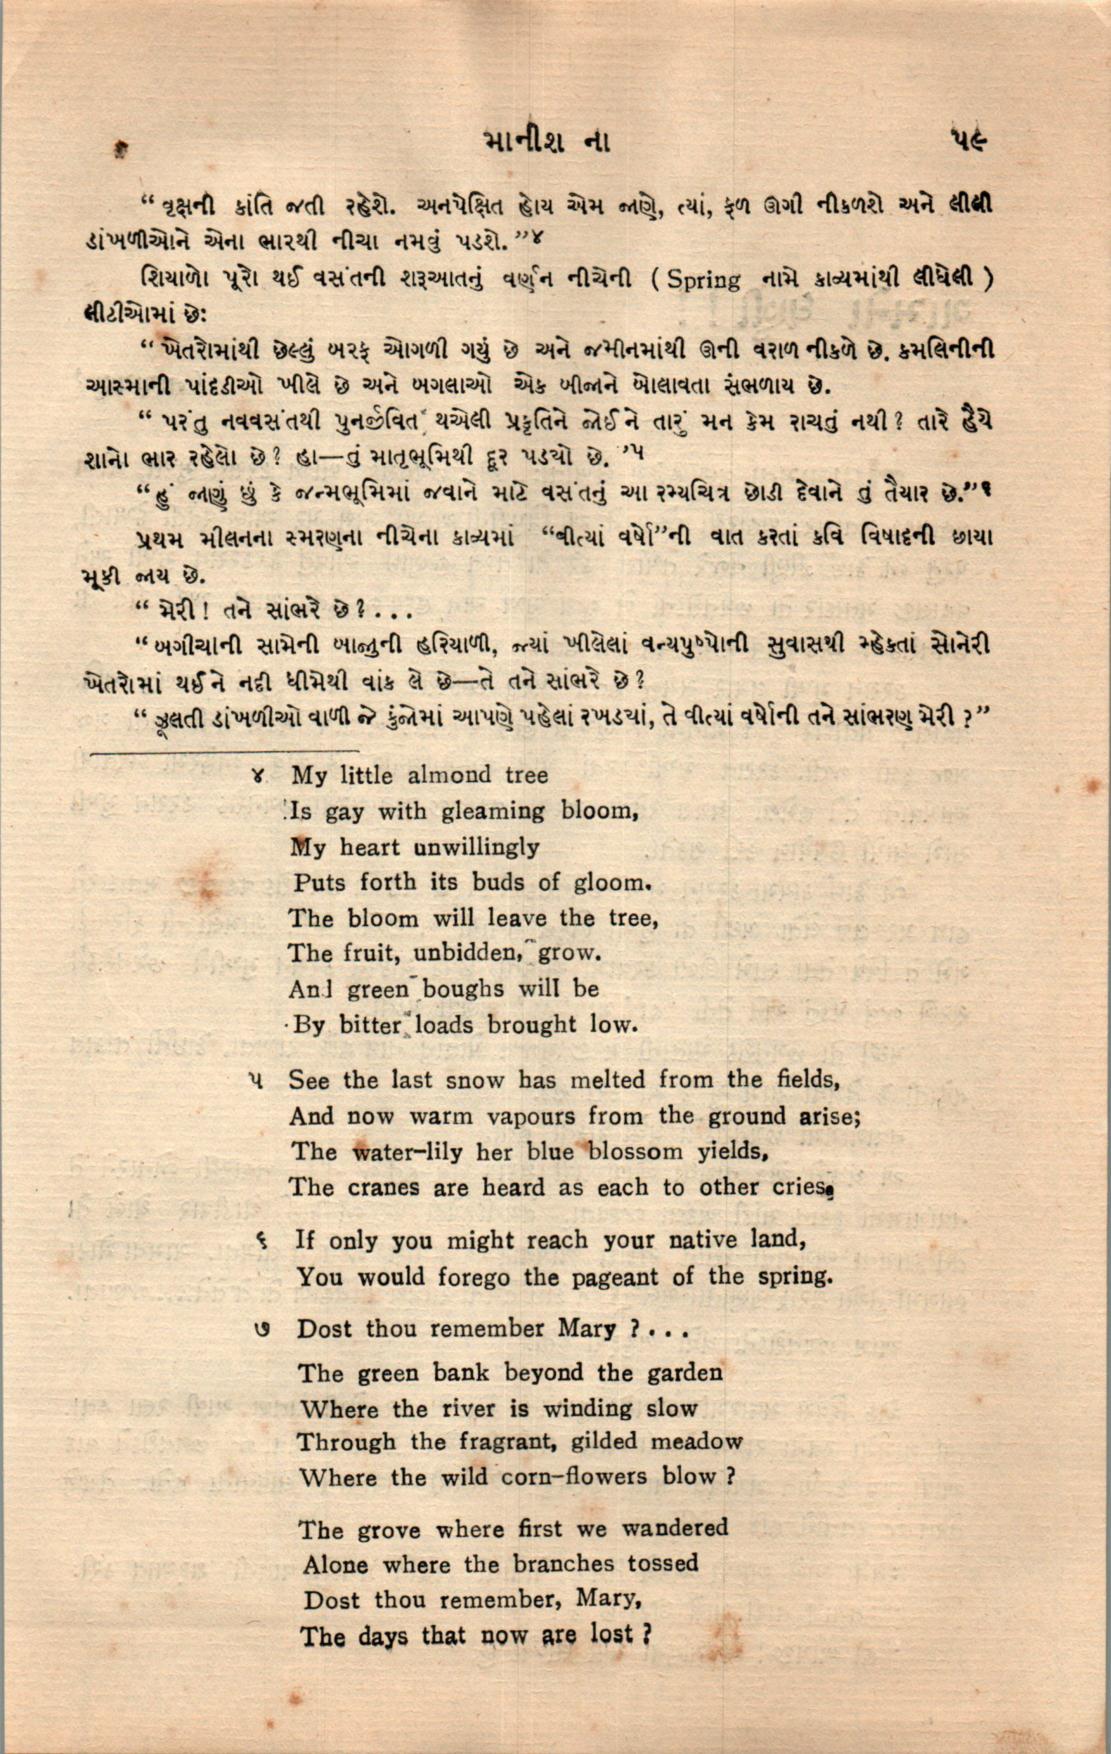 માનીશ ના ૫૯
“ વૃક્ષની કાંતિ જતી રહેશે. અનપેક્ષિત હોય એમ જાણે, ત્યાં, ફળ ઊગી નીકળશે અને લીલી
ડાંખળીઓને એના ભારથી નીચા નમવું પડશે.”૪
શિયાળો પૂરો થઈ વસંતની શરૂઆતનું વર્ણન નીચેની ( Spring નામે કાવ્યમાંથી લીધેલી )
લીટીઓમાં છેઃ
“ ખેતરોમાંથી છેલ્લું બરફ ઓગળી ગયું છે અને જમીનમાંથી ઊની વરાળ નીકળે છે. કમલિનીની
આસ્માની પાંદડીઓ ખીલે છે અને બગલાઓ એક બીજાને બોલાવતા સંભળાય છે.
“ પરંતુ નવવસંતથી પુનર્જીવિત થએલી પ્રકૃતિને જોઈને તારું મન કેમ રાચતું નથી? તારે હૈયે
શાનો ભાર રહેલો છે? હા—તું માતૃભૂમિથી દૂર પડ્યો છે. ’૫
“હું જાણું છું કે જન્મભૂમિમાં જવાને માટે વસંતનું આ રમ્યચિત્ર છોડી દેવાને તું તૈયાર છે.”૬
પ્રથમ મીલનના સ્મરણના નીચેના કાવ્યમાં “વીત્યાં વર્ષો”ની વાત કરતાં કવિ વિષાદની છાયા
મૂકી જાય છે.
“ મેરી! તને સાંભરે છે?...
“બગીચાની સામેની બાજુની હરિયાળી, જ્યાં ખીલેલાં વન્યપુષ્પોની સુવાસથી મ્હેકતાં સોનેરી
ખેતરોમાં થઈને નદી ધીમેથી વાંક લે છે—તે તને સાંભરે છે?
“ ઝૂલતી ડાંખળીઓ વાળી જે કુંજોમાં આપણે પહેલાં રખડ્યાં, તે વીત્યાં વર્ષોની તને સાંભરણ મેરી ?”
૪ My little almond tree
Is gay with gleaming bloom,
My heart unwillingly
Puts forth its buds of gloom.
The bloom will leave the tree,
The fruit, unbidden, grow.
And green boughs will be
By bitter loads brought low.
૫ See the last snow has melted from the fields,
And now warm vapours from the ground arise;
The water-lily her blue blossom yields,
The cranes are heard as each to other cries.
૬ If only you might reach your native land,
You would forego the pageant of the spring.
૭ Dost thou remember Mary ?...
The green bank beyond the garden
Where the river is winding slow
Through the fragrant, gilded meadow
Where the wild corn-flowers blow ?
The grove where first we wandered
Alone where the branches tossed
Dost thou remember, Mary,
The days that now are lost ?